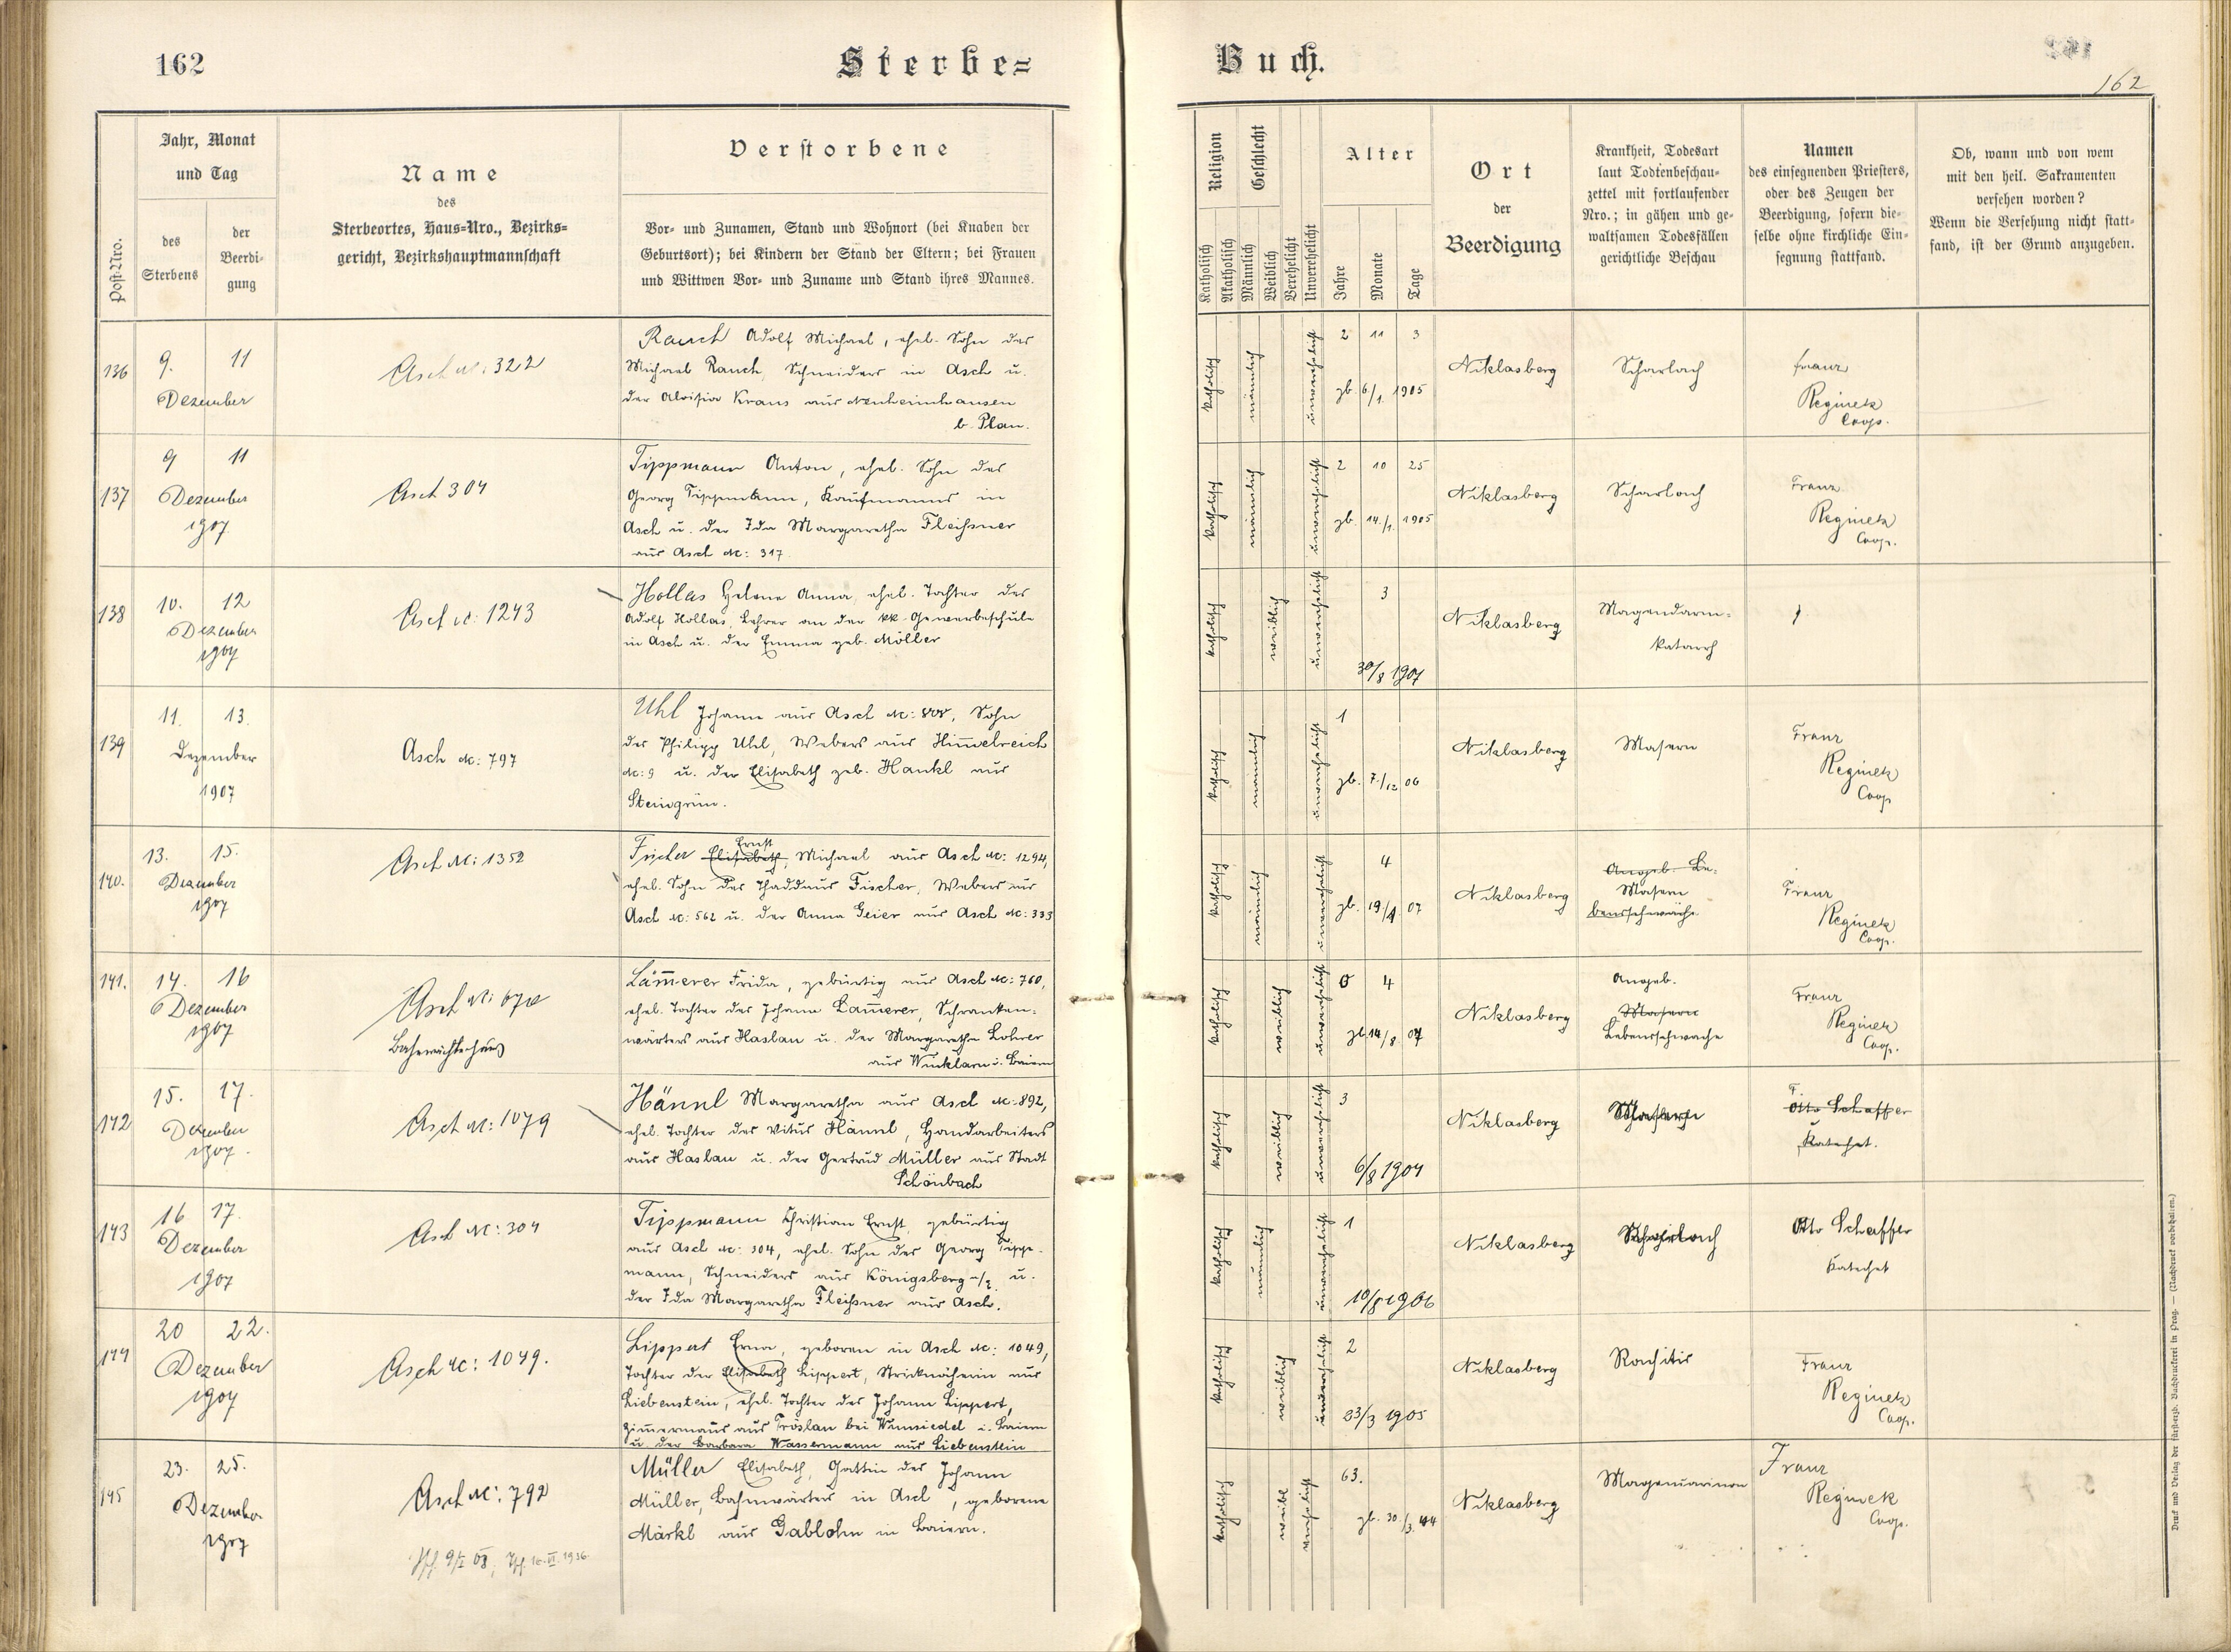 162
Sterbe=
Post-Nro.
Jahr, Monat
und Tag
des
Sterbens
der
Beerdi-
gung
Name
des
Sterbeortes, Haus-Nro., Bezirks-
gericht, Bezirkshauptmannschaft
Verstorbene
Vor- und Zunamen, Stand und Wohnort (bei Knaben der
Geburtsort); bei Kindern der Stand der Eltern; bei Frauen
und Wittwen Vor- und Zuname und Stand ihres Mannes.
136
9. 11
Dezember
Asch Nc: 322
Rauch Adolf Michael, ehel. Sohn des
Michael Rauch, Schneiders in Asch u.
der Aloisia Kraus aus
b. Plan.
137
9 11
Dezember
1907.
Asch 304
Tippmann Anton, ehel. Sohn des
Georg Tippmann, Kaufmanns in
Asch u. der Ida Margaretha Fleißner
aus Asch Nc: 317.
138
10. 12
Dezember
1907
Asch Nc: 1243
Hollas Helene Anna, ehel. Tochter des
Adolf Hollas, Lehrer an der kk. Gewerbeschule
in Asch u. der Emma geb. Möller
139
11. 13.
Dezember
1907
Asch Nc: 797
Uhl Johann aus Asch Nc: 808, Sohn
des Philipp Uhl, Webers aus Him̅elreich
Nc: 9 u. der Elisabeth geb. Hankl aus
Steingrün.
140.
13. 15.
Dezember
1907
Asch Nc: 1352
Ernst
Fischer Elisabeth, Michael aus Asch Nc: 1294,
ehel. Sohn des Thaddäus Fischer, Webers aus
Asch Nc: 562 u. der Anna Geier aus Asch Nc: 333
141.
14. 16
Dezember
1907
Asch Nc:
Läm̅erer Frida, gebürtig aus Asch Nc: 760,
ehel. Tochter des Johann Läm̅erer, Schranken-
wärters aus Haslau u. der Margaretha Lohrer
aus Winklarn i. Baiern
142
15. 17.
Dezember
1907.
Asch Nc: 1079
Hännl Margaretha aus Asch Nc: 892,
ehel. Tochter des Vitus Hännl, Handarbeiters
aus Haslau u. der Gertrud Müller aus Stadt
Schönbach
143
16 17.
Dezember
1907
Asch Nc: 304
Tippmann Christian Ernst, gebürtig
aus Asch Nc: 304, ehel. Sohn des Georg Tipp-
mann, Schneiders aus Königsberg a/E u.
der Ida Margaretha Fleißner aus Asch.
144
20 22.
Dezember
1907
Asch Nc: 1049.
Lippert Erna, geboren in Asch Nc: 1049,
Tochter der Elisabeth Lippert, Stricknäherin aus
Liebenstein, ehel. Tochter des Johann Lippert,
Zim̅ermanns aus Tröslau bei Wunsiedel i. Baiern
u. der Barbara Wassermann aus Liebenstein
145
23. 25.
Dezember
1907
Asch Nc: 792
Müller Elisabeth, Gattin des Johann
Müller, Bahnwärters in Asch, geborene
Märkl aus Gablohn in Baiern.
Buch.
162
Religion
Katholisch
Akatholisch
Geschlecht
Männlich
Weiblich
Verehelicht
Unverehelicht
Alter
Jahre
Monate
Tage
Ort
der
Beerdigung
Krankheit, Todesart
laut Todtenbeschau-
zettel mit fortlaufender
Nro.; in gähen und ge-
waltsamen Todesfällen
gerichtliche Beschau
Namen
des einsegnenden Priesters,
oder des Zeugen der
Beerdigung, sofern die-
selbe ohne kirchliche Ein-
segnung stattfand.
Ob, wann und von wem
mit den heil. Sakramenten
versehen worden?
Wenn die Versehung nicht statt-
fand, ist der Grund anzugeben.
katholisch
männlich
unverehelicht
2 11 3
gb. 6/1. 1905
Niklasberg
Scharlach
Franz
Reginek
Coop.
katholisch
männlich
unverehelicht
2 10 25
gb. 14./1. 1905
Niklasberg
Scharlach
Franz
Reginek
Coop.
katholisch
weiblich
unverehelicht
3
30/8 1907
Niklasberg
Magendarm-
katarrh
katholisch
männlich
unverehelicht
1
gb. 7./12 06
Niklasberg
Masern
Franz
Reginek
Coop
katholisch
männlich
unverehelicht
4
gb. 19/4 07
Niklasberg
Angeb. Le-
Masern
bensschwäche
Franz
Reginek
Coop.
katholisch
weiblich
unverehelicht
0 4
gb 14/8 07
Niklasberg
Angeb.
Masern
Lebensschwäche
Franz
Reginek
Coop.
katholisch
weiblich
unverehelicht
3
6/8 1904
Niklasberg
Masern
Otto Schaffer
Katechet.
katholisch
männlich
unverehelicht
1
10/8 1906
Niklasberg
Scharlach
Otto Schaffer
Katechet
katholisch
weiblich
unverehelicht
2
23/3 1905
Niklasberg
Rachitis
Franz
Reginek
Coop.
katholisch
weibl
verehelicht
63.
gb. 30./3. 44
Niklasberg
Franz
Reginek
Coop.
Druck und Verlag der fürsterzb. Buchdruckerei in Prag. — (Nachdruck vorbehalten.)